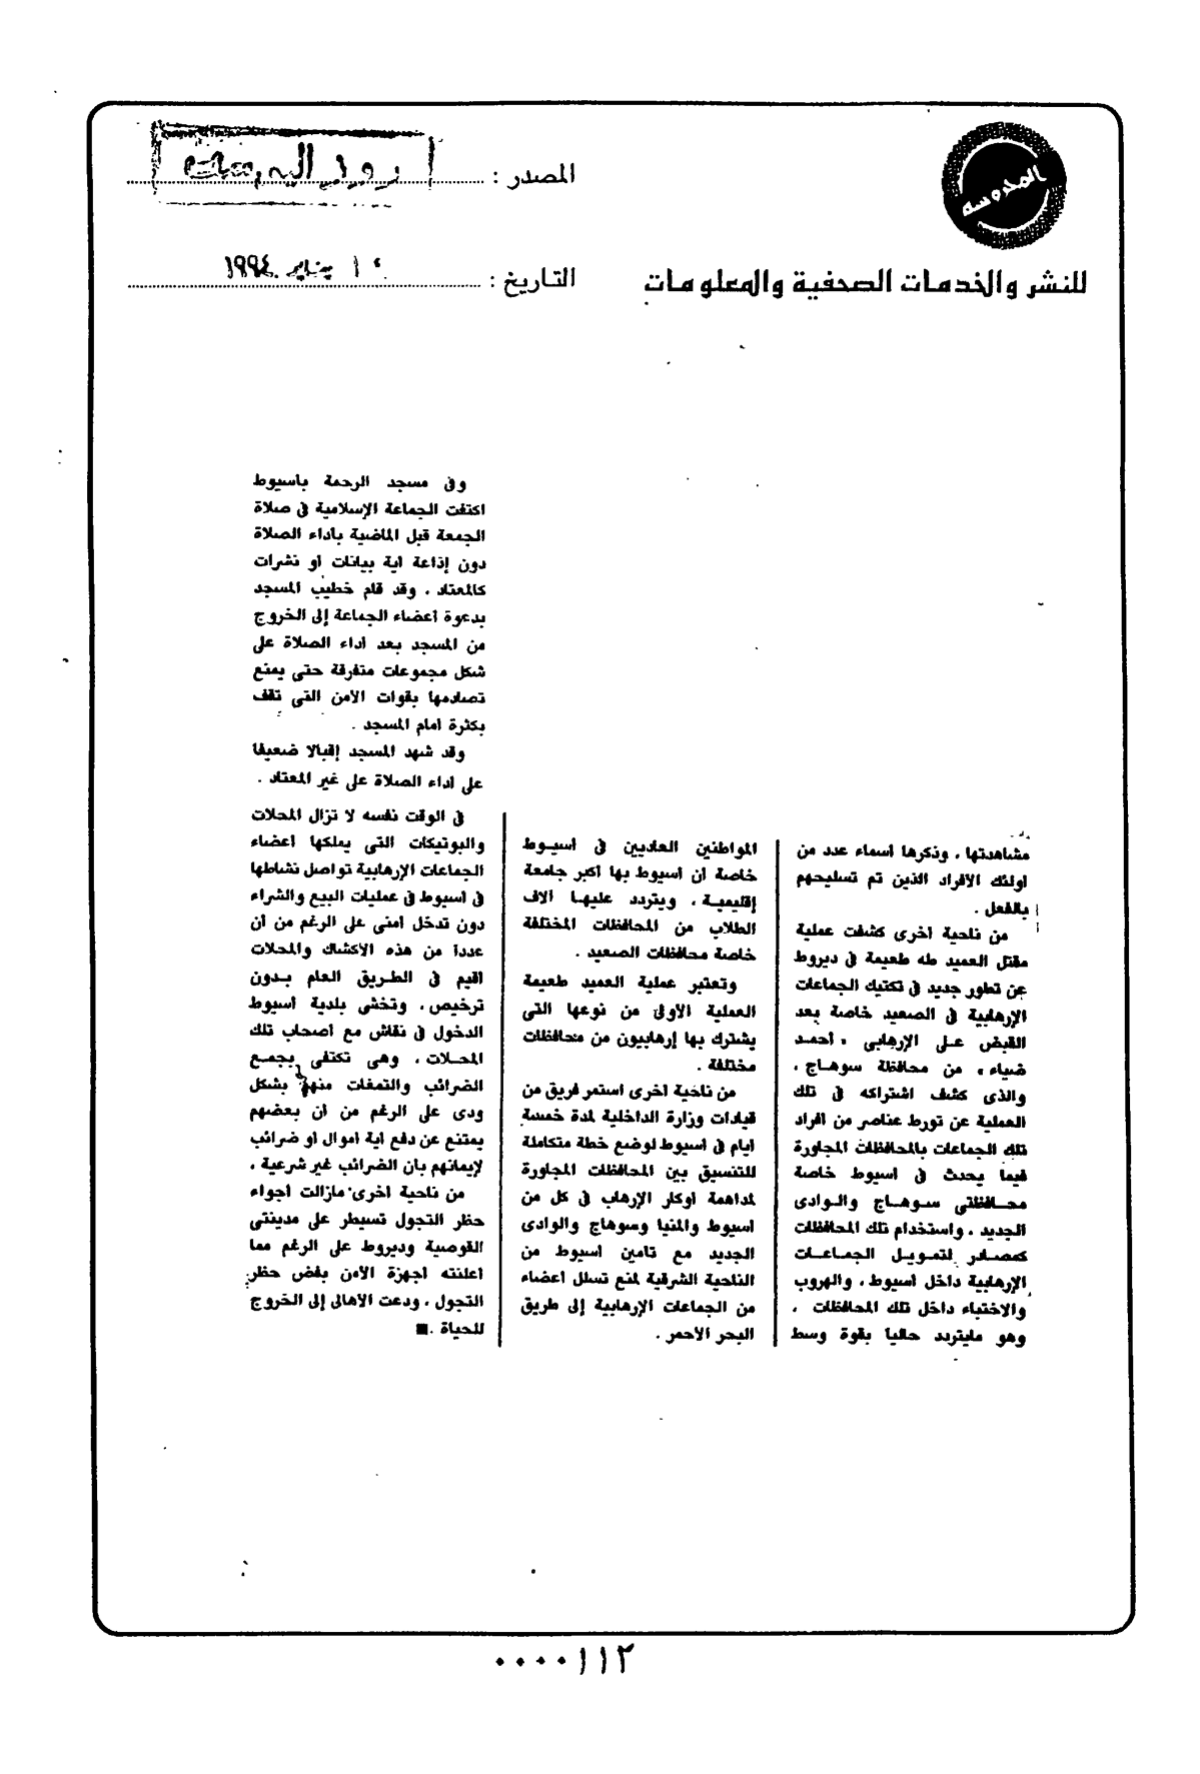 المصدر : روز اليوسف
المحروسه
التاريخ : ١٠ يناير ١٩٩٤
للنشر والخدمات الصحفية والمعلومات
مشاهدتها ، وذكرها اسماء عدد من
اولئك الافراد الذين تم تسليحهم
بالفعل .
من ناحية اخرى كشفت عملية
مقتل العميد طه طعيمة فى ديروط
عن تطور جديد فى تكتيك الجماعات
الإرهابية فى الصعيد خاصة بعد
القبض على الإرهابى « أحمد
ضياء » من محافظة سوهاج ،
والذى كشف اشتراكه فى تلك
العملية عن تورط عناصر من افراد
تلك الجماعات بالمحافظات المجاورة
فيما يحدث فى اسيوط خاصة
محافظتى سوهاج والوادى
الجديد ، واستخدام تلك المحافظات
كمصادر لتمويل الجماعات
الإرهابية داخل اسيوط ، والهروب
والاختباء داخل تلك المحافظات ،
وهو مايتردد حاليا بقوة وسط
المواطنين العاديين فى اسيوط
خاصة ان اسيوط بها اكبر جامعة
إقليمية ، ويتردد عليها الاف
الطلاب من المحافظات المختلفة
خاصة محافظات الصعيد .
وتعتبر عملية العميد طعيمة
العملية الأولى من نوعها التى
يشترك بها إرهابيون من محافظات
مختلفة .
من ناحية اخرى استمر فريق من
قيادات وزارة الداخلية لمدة خمسة
ايام فى اسيوط لوضع خطة متكاملة
للتنسيق بين المحافظات المجاورة
لمداهمة اوكار الإرهاب فى كل من
اسيوط والمنيا وسوهاج والوادى
الجديد مع تامين اسيوط من
الناحية الشرقية لمنع تسلل اعضاء
من الجماعات الإرهابية إلى طريق
البحر الأحمر .
وفى مسجد الرحمة باسيوط
اكتفت الجماعة الإسلامية فى صلاة
الجمعة قبل الماضية باداء الصلاة
دون إذاعة اية بيانات او نشرات
كالمعتاد ، وقد قام خطيب المسجد
بدعوة اعضاء الجماعة إلى الخروج
من المسجد بعد اداء الصلاة على
شكل مجموعات متفرقة حتى يمنع
تصادمها بقوات الأمن التى تقف
بكثرة امام المسجد .
وقد شهد المسجد إقبالا ضعيفا
على اداء الصلاة على غير المعتاد .
فى الوقت نفسه لا تزال المحلات
والبوتيكات التى يملكها اعضاء
الجماعات الإرهابية تواصل نشاطها
فى اسيوط فى عمليات البيع والشراء
دون تدخل امنى على الرغم من ان
عددا من هذه الأكشاك والمحلات
اقيم فى الطريق العام بدون
ترخيص ، وتخشى بلدية اسيوط
الدخول فى نقاش مع اصحاب تلك
المحلات ، وهى تكتفى بجمع
الضرائب والتمغات منهم بشكل
ودى على الرغم من ان بعضهم
يمتنع عن دفع اية اموال او ضرائب
لإيمانهم بان الضرائب غير شرعية .
من ناحية اخرى مازالت اجواء
حظر التجول تسيطر على مدينتى
القوصية وديروط على الرغم مما
اعلنته اجهزة الأمن بفض حظر
التجول ، ودعت الأهالى إلى الخروج
للحياة . ■
٠٠٠٠١١٢